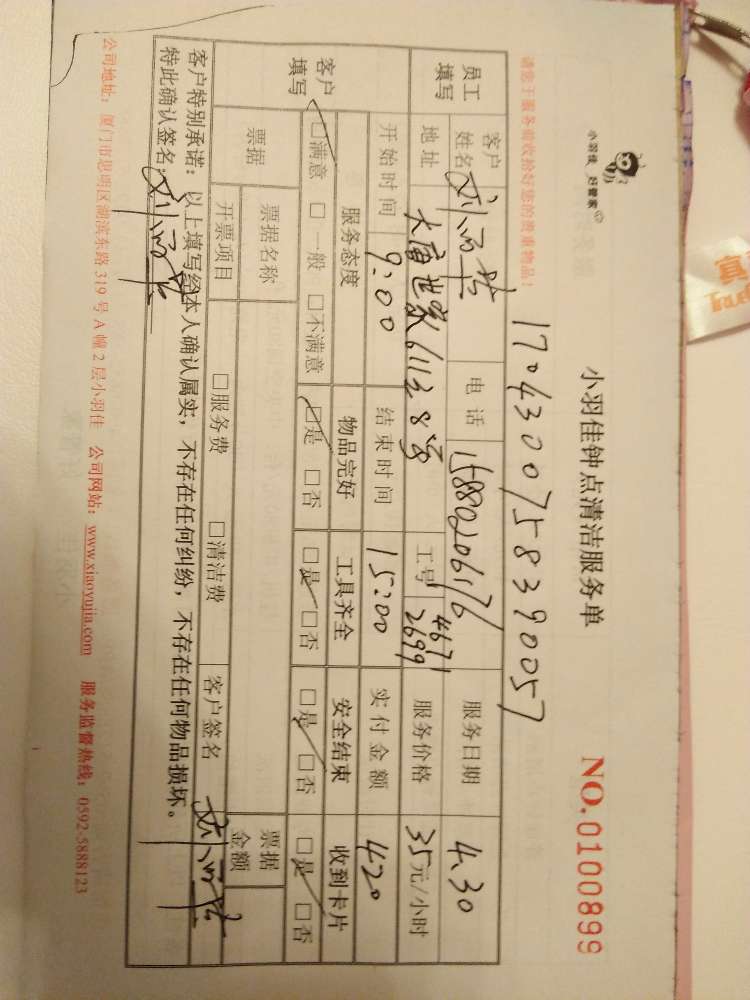 小羽佳 好管家
小羽佳钟点清洁服务单
NO.0100899
请您于服务前收拾好您的贵重物品！
1704300758390057
员工填写 客户姓名 电话 15880206176 服务日期 4.30
地址 大唐世家6113号 工号 4671 2699 服务价格 35元/小时
开始时间 9:00 结束时间 15:00 实付金额 420
客户填写 服务态度 物品完好 工具齐全 安全结束 收到卡片
□满意 □一般 □不满意 □是 □否 □是 □否 □是 □否 □是 □否
票据 票据名称 票据金额
开票项目 □服务费 □清洁费 客户签名
客户特别承诺：以上填写经本人确认属实，不存在任何纠纷，不存在任何物品损坏。
特此确认签名：
公司地址：厦门市思明区湖滨东路319号A幢2层小羽佳 公司网站：www.xiaoyujia.com 服务监督热线：0592-5888123